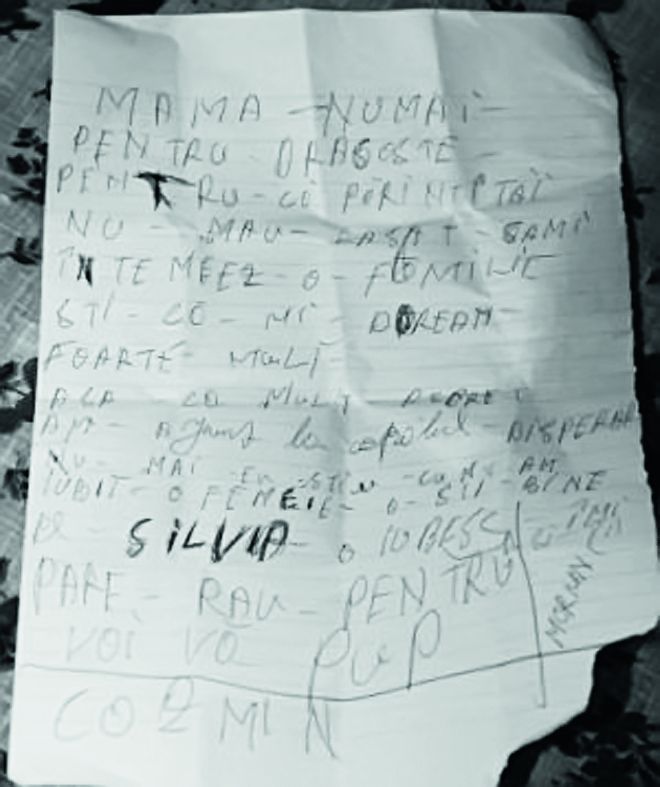 MAMA - NUMAI -
PENTRU DRAGOSTE -
PENTRU - CĂ PĂRINȚII TĂI
NU - MAU - LASAT - SAMI
INTEMEEZ - O - FAMILIE
STI - CO - MI - DOREAM -
FOARTE - MULT -
AȘA CO MULT
AM - Ajuns la capătul - DISPERĂ
NU - MAI - EU - STIU - CUM - AM
IUBIT - O FEMEIE - O - STI - BINE
PE - SILVIA - O IUBESC - IMI
PARE - RAU - PENTRU
VOI VĂ PUP
COZMIN